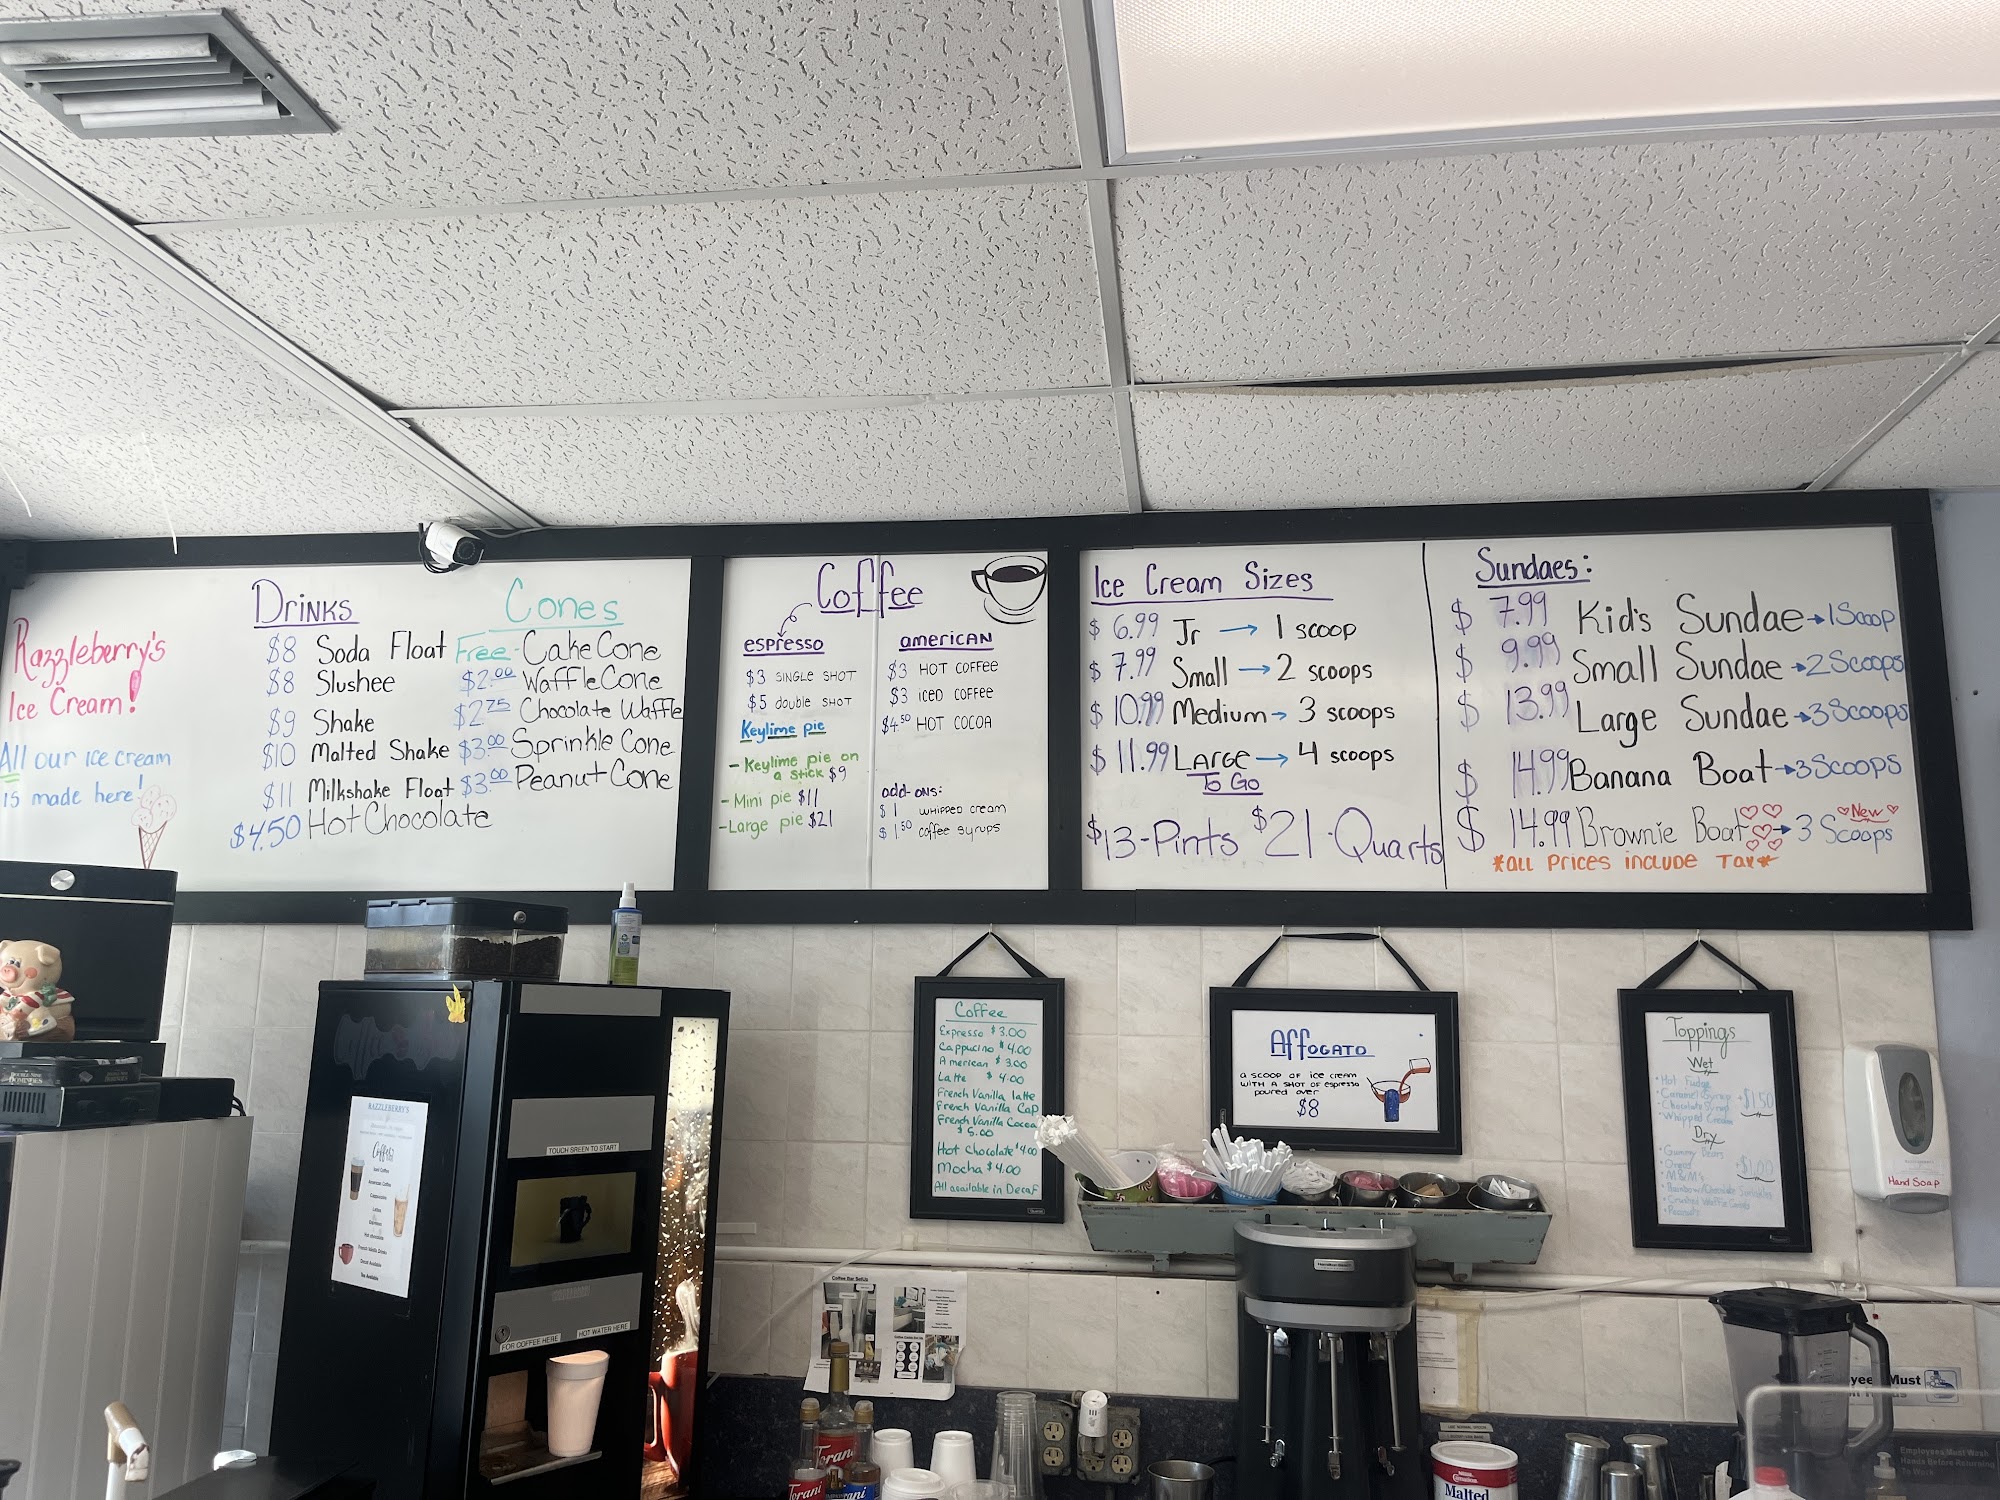 Razzleberry's
Ice Cream!
All our ice cream
is made here!
Drinks
$8 Soda Float
$8 Slushee
$9 Shake
$10 Malted Shake
$11 Milkshake Float
$4.50 Hot Chocolate
Cones
Free - Cake Cone
$2.00 Waffle Cone
$2.75 Chocolate Waffle
$3.00 Sprinkle Cone
$3.00 Peanut Cone
Coffee
espresso
$3 SINGLE SHOT
$5 double SHOT
Keylime pie
- Keylime pie on
a stick $9
- Mini pie $11
- Large pie $21
american
$3 HOT COFFEE
$3 iced COFFEE
$4.50 HOT COCOA
add-ons:
$1 whipped cream
$1.50 coffee syrups
Ice Cream Sizes
$6.99 Jr → 1 scoop
$7.99 Small → 2 scoops
$10.99 Medium → 3 scoops
$11.99 Large → 4 scoops
To Go
$13-Pints $21-Quarts
Sundaes:
$7.99 Kid's Sundae → 1 Scoop
$9.99 Small Sundae → 2 Scoops
$13.99 Large Sundae → 3 Scoops
$14.99 Banana Boat → 3 Scoops
New
$14.99 Brownie Boat → 3 Scoops
*all prices include Tax*
Coffee
Expresso $3.00
Cappucino $4.00
American $3.00
Latte $4.00
French Vanilla latte
French Vanilla Cap
French Vanilla Cocoa
$5.00
Hot Chocolate $4.00
Mocha $4.00
All available in Decaf
Affogato
a scoop of ice cream
with a shot of espresso
poured over
$8
Toppings
Wet
Hot Fudge
Caramel Syrup +$1.50
Chocolate Syrup
Whipped Cream
Dry
Gummy Bears
Oreos +$1.00
M&M's
Crushed Waffle Cones
Peanuts
Hand Soap
RAZZLEBERRY'S
Coffee
Iced Coffee
American Coffee
Cappuccino
Lattes
Espresso
Hot chocolate
French Vanilla Drinks
Decaf Available
Tea Available
TOUCH SREEN TO START
FOR COFFEE HERE
HOT WATER HERE
DOUBLE NINE
DOMINOES
Coffee Bar SetUp
Hamilton Beach
Torani
Torani
Malted
Must
Employees Must Wash
Hands Before Returning
To Work